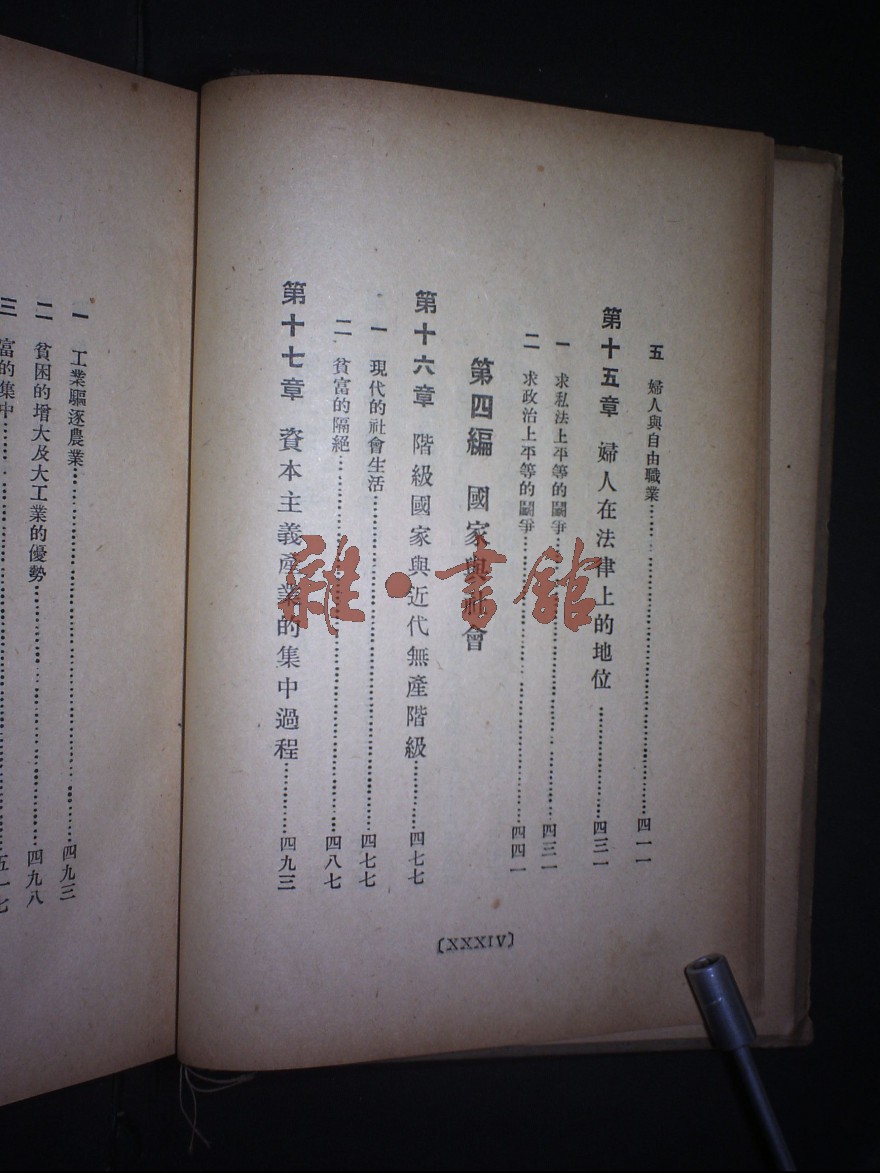 五　婦人與自由職業……四一一
第十五章　婦人在法律上的地位……四三一
一　求私法上平等的鬭爭……四三一
二　求政治上平等的鬭爭……四四一
第四編　國家與社會
第十六章　階級國家與近代無產階級……四七七
一　現代的社會生活……四七七
二　貧富的隔絕……四八七
第十七章　資本主義產業的集中過程……四九三
〔XXXIV〕
一　工業驅逐農業……四九三
二　貧困的增大及大工業的優勢……四九八
三　富的集中……五一七
雜·書館